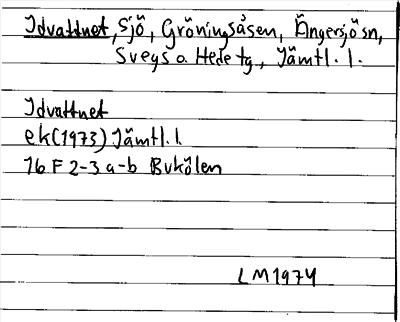 Idvattnet, sjö, Gröningsåsen, Ängersjö sn,
Svegs o. Hede tg, Jämtl. l.
Idvattnet
ek (1973) Jämtl. l.
16 F 2-3 a-b Bukölen
LM 1974